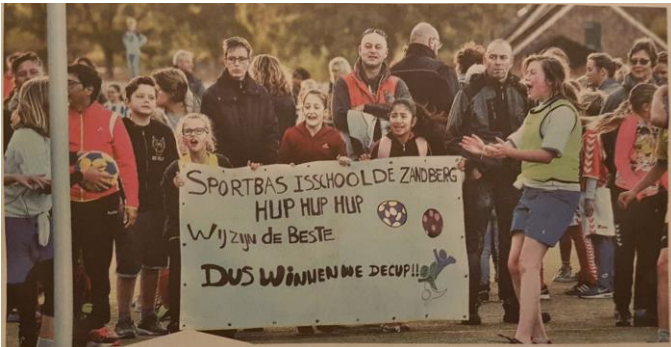 SPORTBAS ISSCHOOL DE ZANDBERG
HUP HUP HUP
WIJ ZIJN DE BESTE
DUS WINNEN WE DE CUP!!